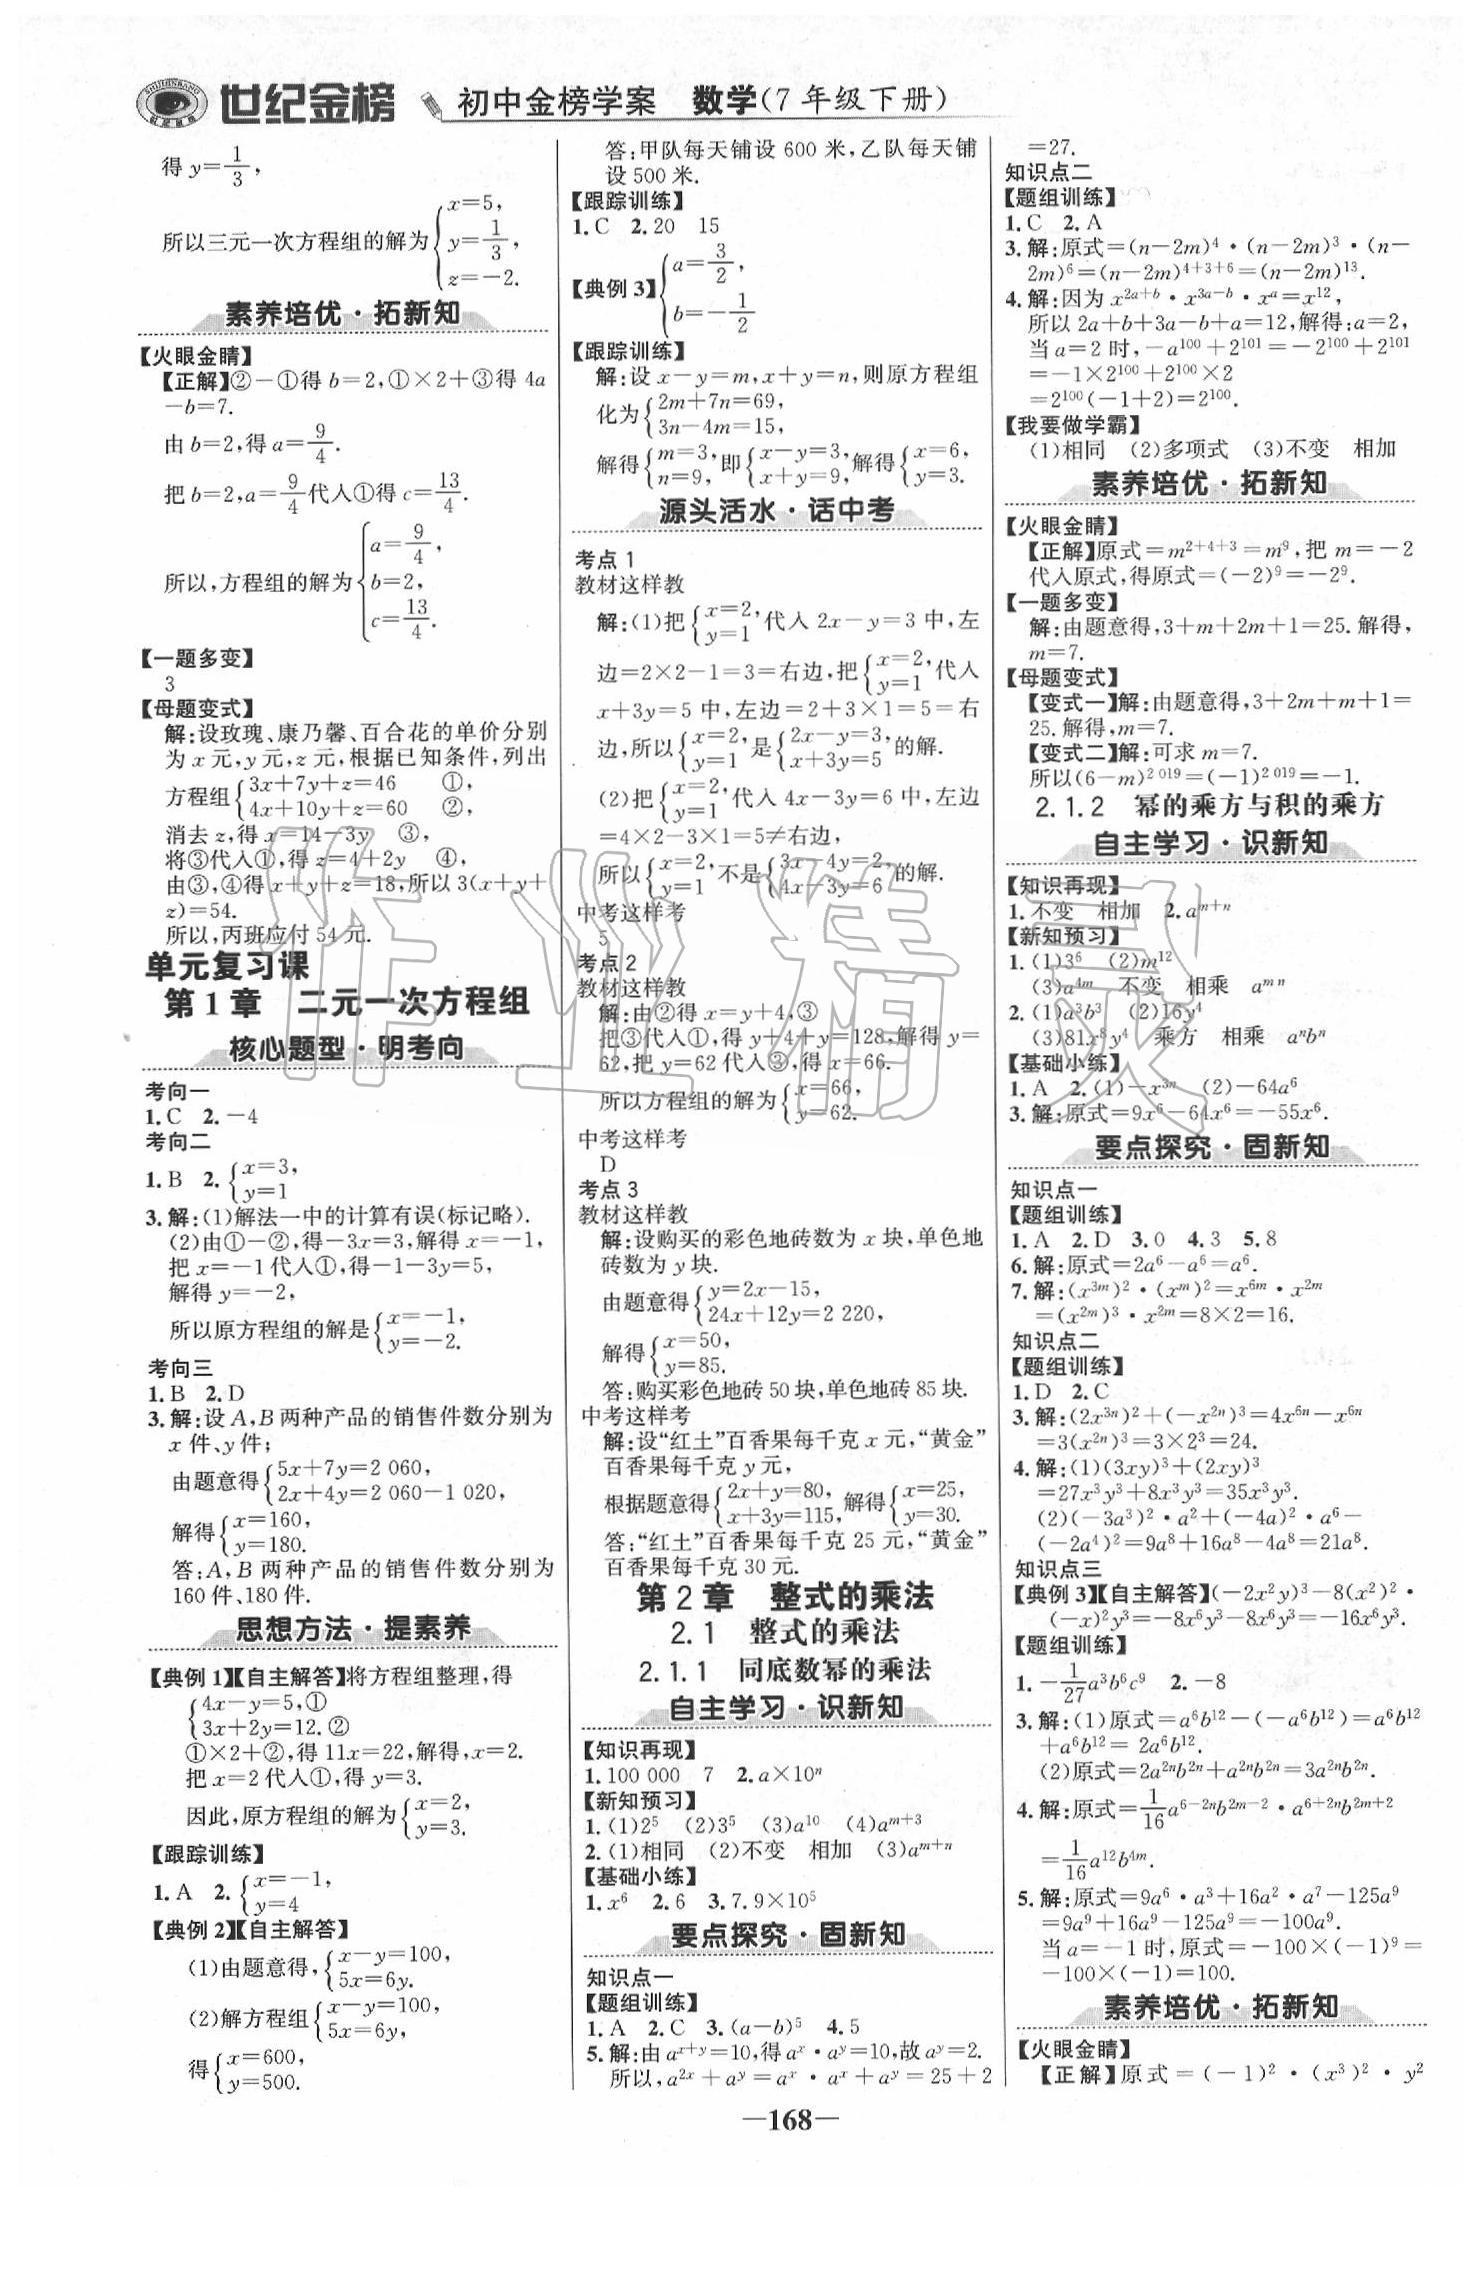 世纪金榜 初中金榜学案 数学(7年级下册)
得 y=1/3,
所以三元一次方程组的解为{x=5, y=1/3, z=-2.
素养培优·拓新知
【火眼金睛】
【正解】②-①得 b=2,①×2+③得 4a
-b=7.
由 b=2,得 a=9/4.
把 b=2,a=9/4代入①得 c=13/4.
所以,方程组的解为{a=9/4, b=2, c=13/4.
【一题多变】
3
【母题变式】
解:设玫瑰、康乃馨、百合花的单价分别
为 x 元,y 元,z 元,根据已知条件,列出
方程组{3x+7y+z=46 ①, 4x+10y+z=60 ②,
消去 z,得 x=14-3y ③,
将③代入①,得 z=4+2y ④,
由③,④得 x+y+z=18,所以 3(x+y+
z)=54.
所以,丙班应付 54 元.
单元复习课
第 1 章 二元一次方程组
核心题型·明考向
考向一
1.C 2.-4
考向二
1.B 2.{x=3, y=1
3.解:(1)解法一中的计算有误(标记略).
(2)由①-②,得-3x=3,解得 x=-1,
把 x=-1 代入①,得-1-3y=5,
解得 y=-2,
所以原方程组的解是{x=-1, y=-2.
考向三
1.B 2.D
3.解:设 A,B 两种产品的销售件数分别为
x 件、y 件;
由题意得{5x+7y=2 060, 2x+4y=2 060-1 020,
解得{x=160, y=180.
答:A,B 两种产品的销售件数分别为
160 件、180 件.
思想方法·提素养
【典例 1】【自主解答】将方程组整理,得
{4x-y=5,① 3x+2y=12.②
①×2+②,得 11x=22,解得,x=2.
把 x=2 代入①,得 y=3.
因此,原方程组的解为{x=2, y=3.
【跟踪训练】
1.A 2.{x=-1, y=4
【典例 2】【自主解答】
(1)由题意得,{x-y=100, 5x=6y.
(2)解方程组{x-y=100, 5x=6y,
得{x=600, y=500.
答:甲队每天铺设 600 米,乙队每天铺
设 500 米.
【跟踪训练】
1.C 2.20 15
【典例 3】{a=3/2, b=-1/2
【跟踪训练】
解:设 x-y=m,x+y=n,则原方程组
化为{2m+7n=69, 3n-4m=15,
解得{m=3, n=9,即{x-y=3, x+y=9,解得{x=6, y=3.
源头活水·话中考
考点 1
教材这样教
解:(1)把{x=2, y=1代入 2x-y=3 中,左
边=2×2-1=3=右边,把{x=2, y=1代入
x+3y=5 中,左边=2+3×1=5=右
边,所以{x=2, y=1是{2x-y=3, x+3y=5的解.
(2)把{x=2, y=1代入 4x-3y=6 中,左边
=4×2-3×1=5≠右边,
所以{x=2, y=1不是{3x-4y=2, 4x-3y=6的解.
中考这样考
5
考点 2
教材这样教
解:由②得 x=y+4,③
把③代入①,得 y+4+y=128,解得 y=
62,把 y=62 代入③,得 x=66.
所以方程组的解为{x=66, y=62.
中考这样考
D
考点 3
教材这样教
解:设购买的彩色地砖数为 x 块,单色地
砖数为 y 块.
由题意得{y=2x-15, 24x+12y=2 220,
解得{x=50, y=85.
答:购买彩色地砖 50 块,单色地砖 85 块.
中考这样考
解:设“红土”百香果每千克 x 元,“黄金”
百香果每千克 y 元,
根据题意得{2x+y=80, x+3y=115,解得{x=25, y=30.
答:“红土”百香果每千克 25 元,“黄金”
百香果每千克 30 元.
第 2 章 整式的乘法
2.1 整式的乘法
2.1.1 同底数幂的乘法
自主学习·识新知
【知识再现】
1.100 000 7 2.a×10ⁿ
【新知预习】
1.(1)2⁵ (2)3⁵ (3)a¹⁰ (4)a^(m+3)
2.(1)相同 (2)不变 相加 (3)a^(m+n)
【基础小练】
1.x⁶ 2.6 3.7.9×10⁵
要点探究·固新知
知识点一
【题组训练】
1.A 2.C 3.(a-b)⁵ 4.5
5.解:由 a^(x+y)=10,得 a^x·a^y=10,故 a^y=2.
所以,a^(2x)+a^y=a^x·a^x+a^y=25+2
=27.
知识点二
【题组训练】
1.C 2.A
3.解:原式=(n-2m)⁴·(n-2m)³·(n-
2m)⁶=(n-2m)^(4+3+6)=(n-2m)¹³.
4.解:因为 x^(2a+b)·x^(3a-b)·x^a=x¹²,
所以 2a+b+3a-b+a=12,解得:a=2,
当 a=2 时,-a¹⁰⁰+2¹⁰¹=-2¹⁰⁰+2¹⁰¹
=-1×2¹⁰⁰+2¹⁰⁰×2
=2¹⁰⁰(-1+2)=2¹⁰⁰.
【我要做学霸】
(1)相同 (2)多项式 (3)不变 相加
素养培优·拓新知
【火眼金睛】
【正解】原式=m^(2+4+3)=m⁹,把 m=-2
代入原式,得原式=(-2)⁹=-2⁹.
【一题多变】
解:由题意得,3+m+2m+1=25.解得,
m=7.
【母题变式】
【变式一】解:由题意得,3+2m+m+1=
25.解得,m=7.
【变式二】解:可求 m=7.
所以(6-m)^(2 019)=(-1)^(2 019)=-1.
2.1.2 幂的乘方与积的乘方
自主学习·识新知
【知识再现】
1.不变 相加 2.a^(m+n)
【新知预习】
1.(1)3⁶ (2)m¹²
(3)a^(4m) 不变 相乘 a^(mn)
2.(1)a³b³ (2)16y⁴
(3)81x⁸y⁴ 乘方 相乘 aⁿbⁿ
【基础小练】
1.A 2.(1)-x^(3n) (2)-64a⁶
3.解:原式=9x⁶-64x⁶=-55x⁶.
要点探究·固新知
知识点一
【题组训练】
1.A 2.D 3.0 4.3 5.8
6.解:原式=2a⁶-a⁶=a⁶.
7.解:(x^(3m))²·(x^m)²=x^(6m)·x^(2m)
=(x^(2m))³·x^(2m)=8×2=16.
知识点二
【题组训练】
1.D 2.C
3.解:(2x^(3n))²+(-x^(2n))³=4x^(6n)-x^(6n)
=3(x^(2n))³=3×2³=24.
4.解:(1)(3xy)³+(2xy)³
=27x³y³+8x³y³=35x³y³.
(2)(-3a³)²·a²+(-4a)²·a⁶-
(-2a⁴)²=9a⁸+16a⁸-4a⁸=21a⁸.
知识点三
【典例 3】【自主解答】(-2x²y)³-8(x²)²·
(-x)²y³=-8x⁶y³-8x⁶y³=-16x⁶y³.
【题组训练】
1.-1/27a³b⁶c⁹ 2.-8
3.解:(1)原式=a⁶b¹²-(-a⁶b¹²)=a⁶b¹²
+a⁶b¹²= 2a⁶b¹².
(2)原式=2a^(2n)b^(2n)+a^(2n)b^(2n)=3a^(2n)b^(2n).
4.解:原式=1/16a^(6-2n)b^(2m-2)·a^(6+2n)b^(2m+2)
=1/16a¹²b^(4m).
5.解:原式=9a⁶·a³+16a²·a⁷-125a⁹
=9a⁹+16a⁹-125a⁹=-100a⁹.
当 a=-1 时,原式=-100×(-1)⁹=
-100×(-1)=100.
素养培优·拓新知
【火眼金睛】
【正解】原式=(-1)²·(x³)²·y²
—168—
作业精灵